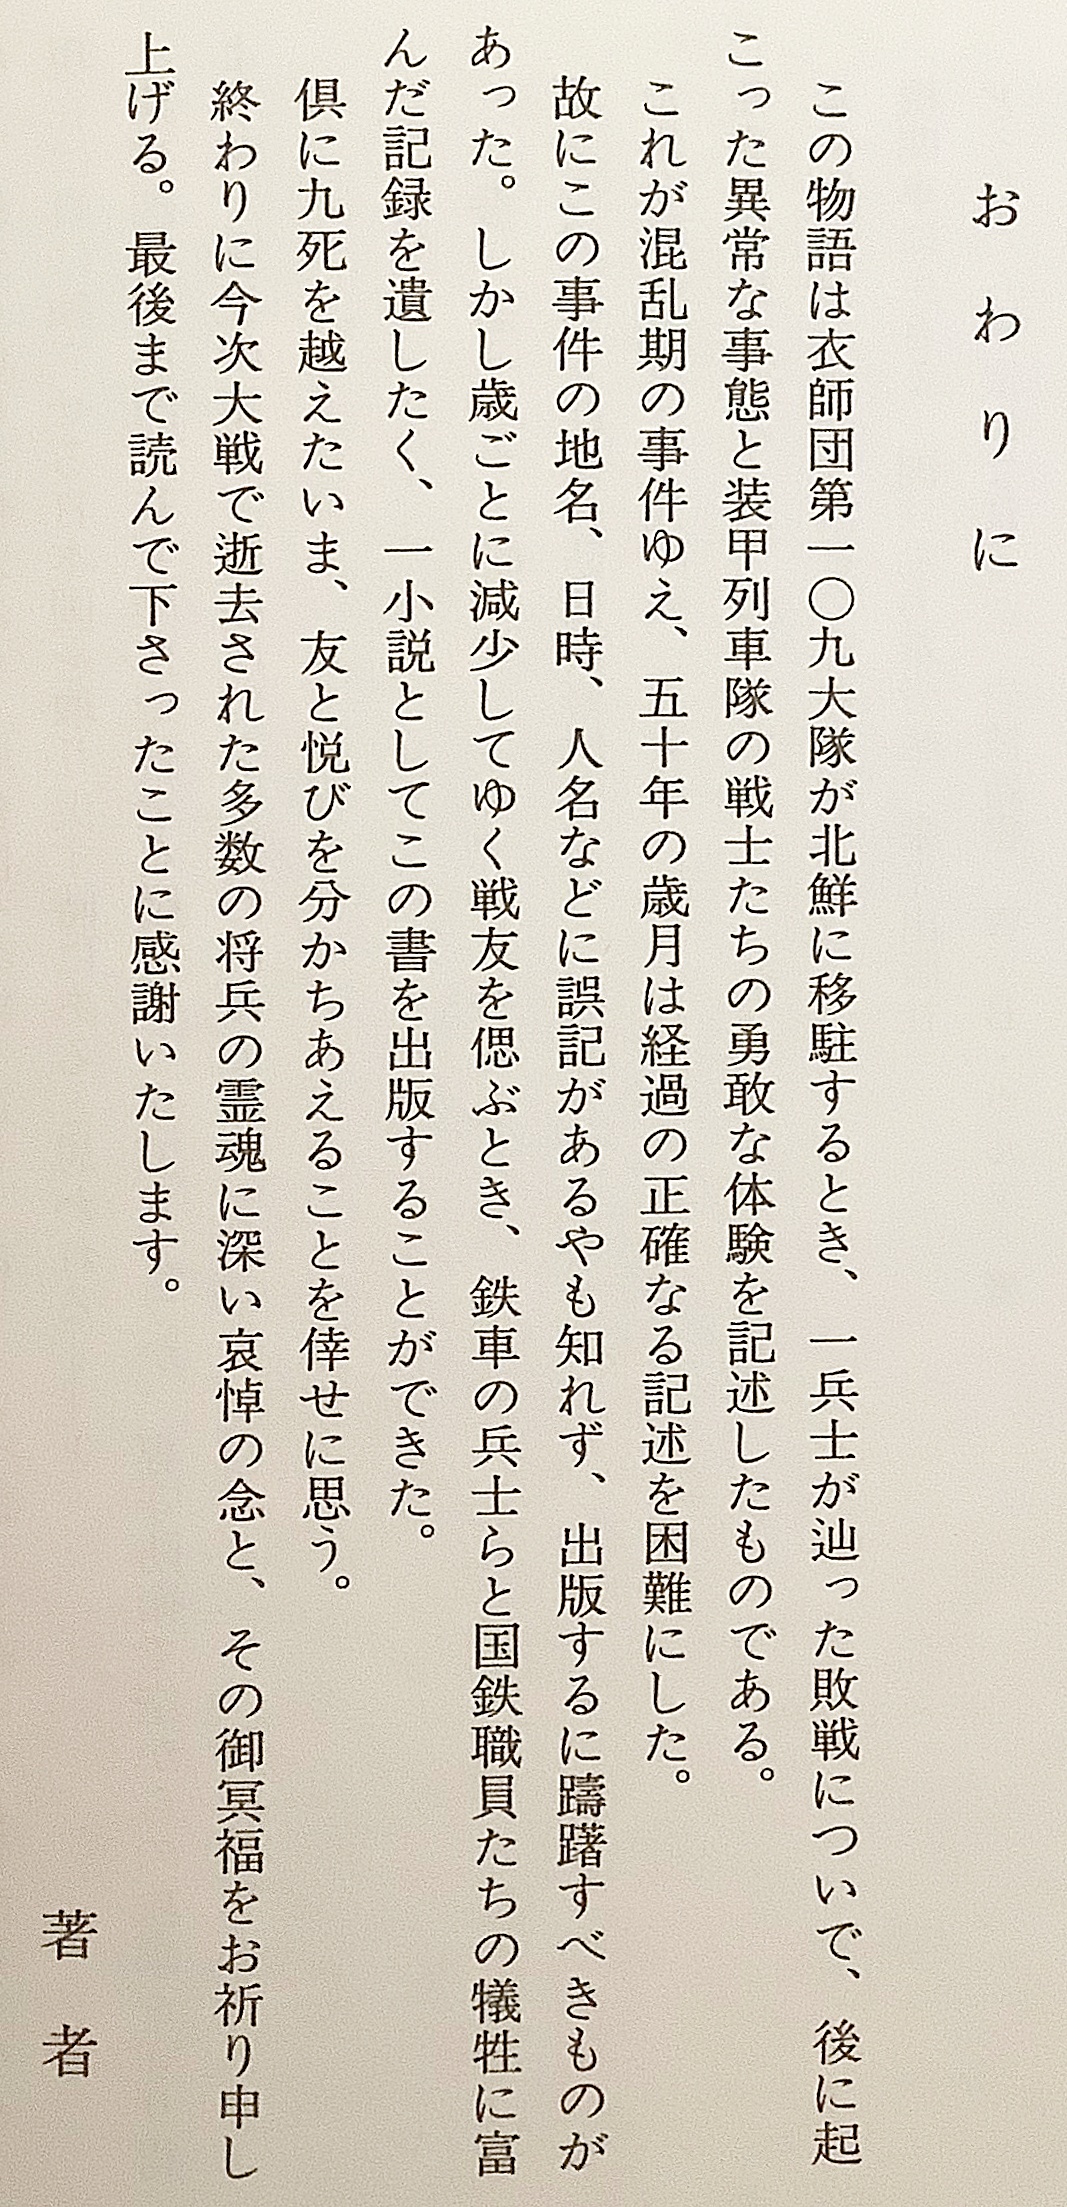 おわりに
この物語は衣師団第一〇九大隊が北鮮に移駐するとき、一兵士が辿った敗戦についで、後に起
こった異常な事態と装甲列車隊の戦士たちの勇敢な体験を記述したものである。
これが混乱期の事件ゆえ、五十年の歳月は経過の正確なる記述を困難にした。
故にこの事件の地名、日時、人名などに誤記があるやも知れず、出版するに躊躇すべきものが
あった。しかし歳ごとに減少してゆく戦友を偲ぶとき、鉄車の兵士らと国鉄職員たちの犠牲に富
んだ記録を遺したく、一小説としてこの書を出版することができた。
倶に九死を越えたいま、友と悦びを分かちあえることを倖せに思う。
終わりに今次大戦で逝去された多数の将兵の霊魂に深い哀悼の念と、その御冥福をお祈り申し
上げる。最後まで読んで下さったことに感謝いたします。
著者